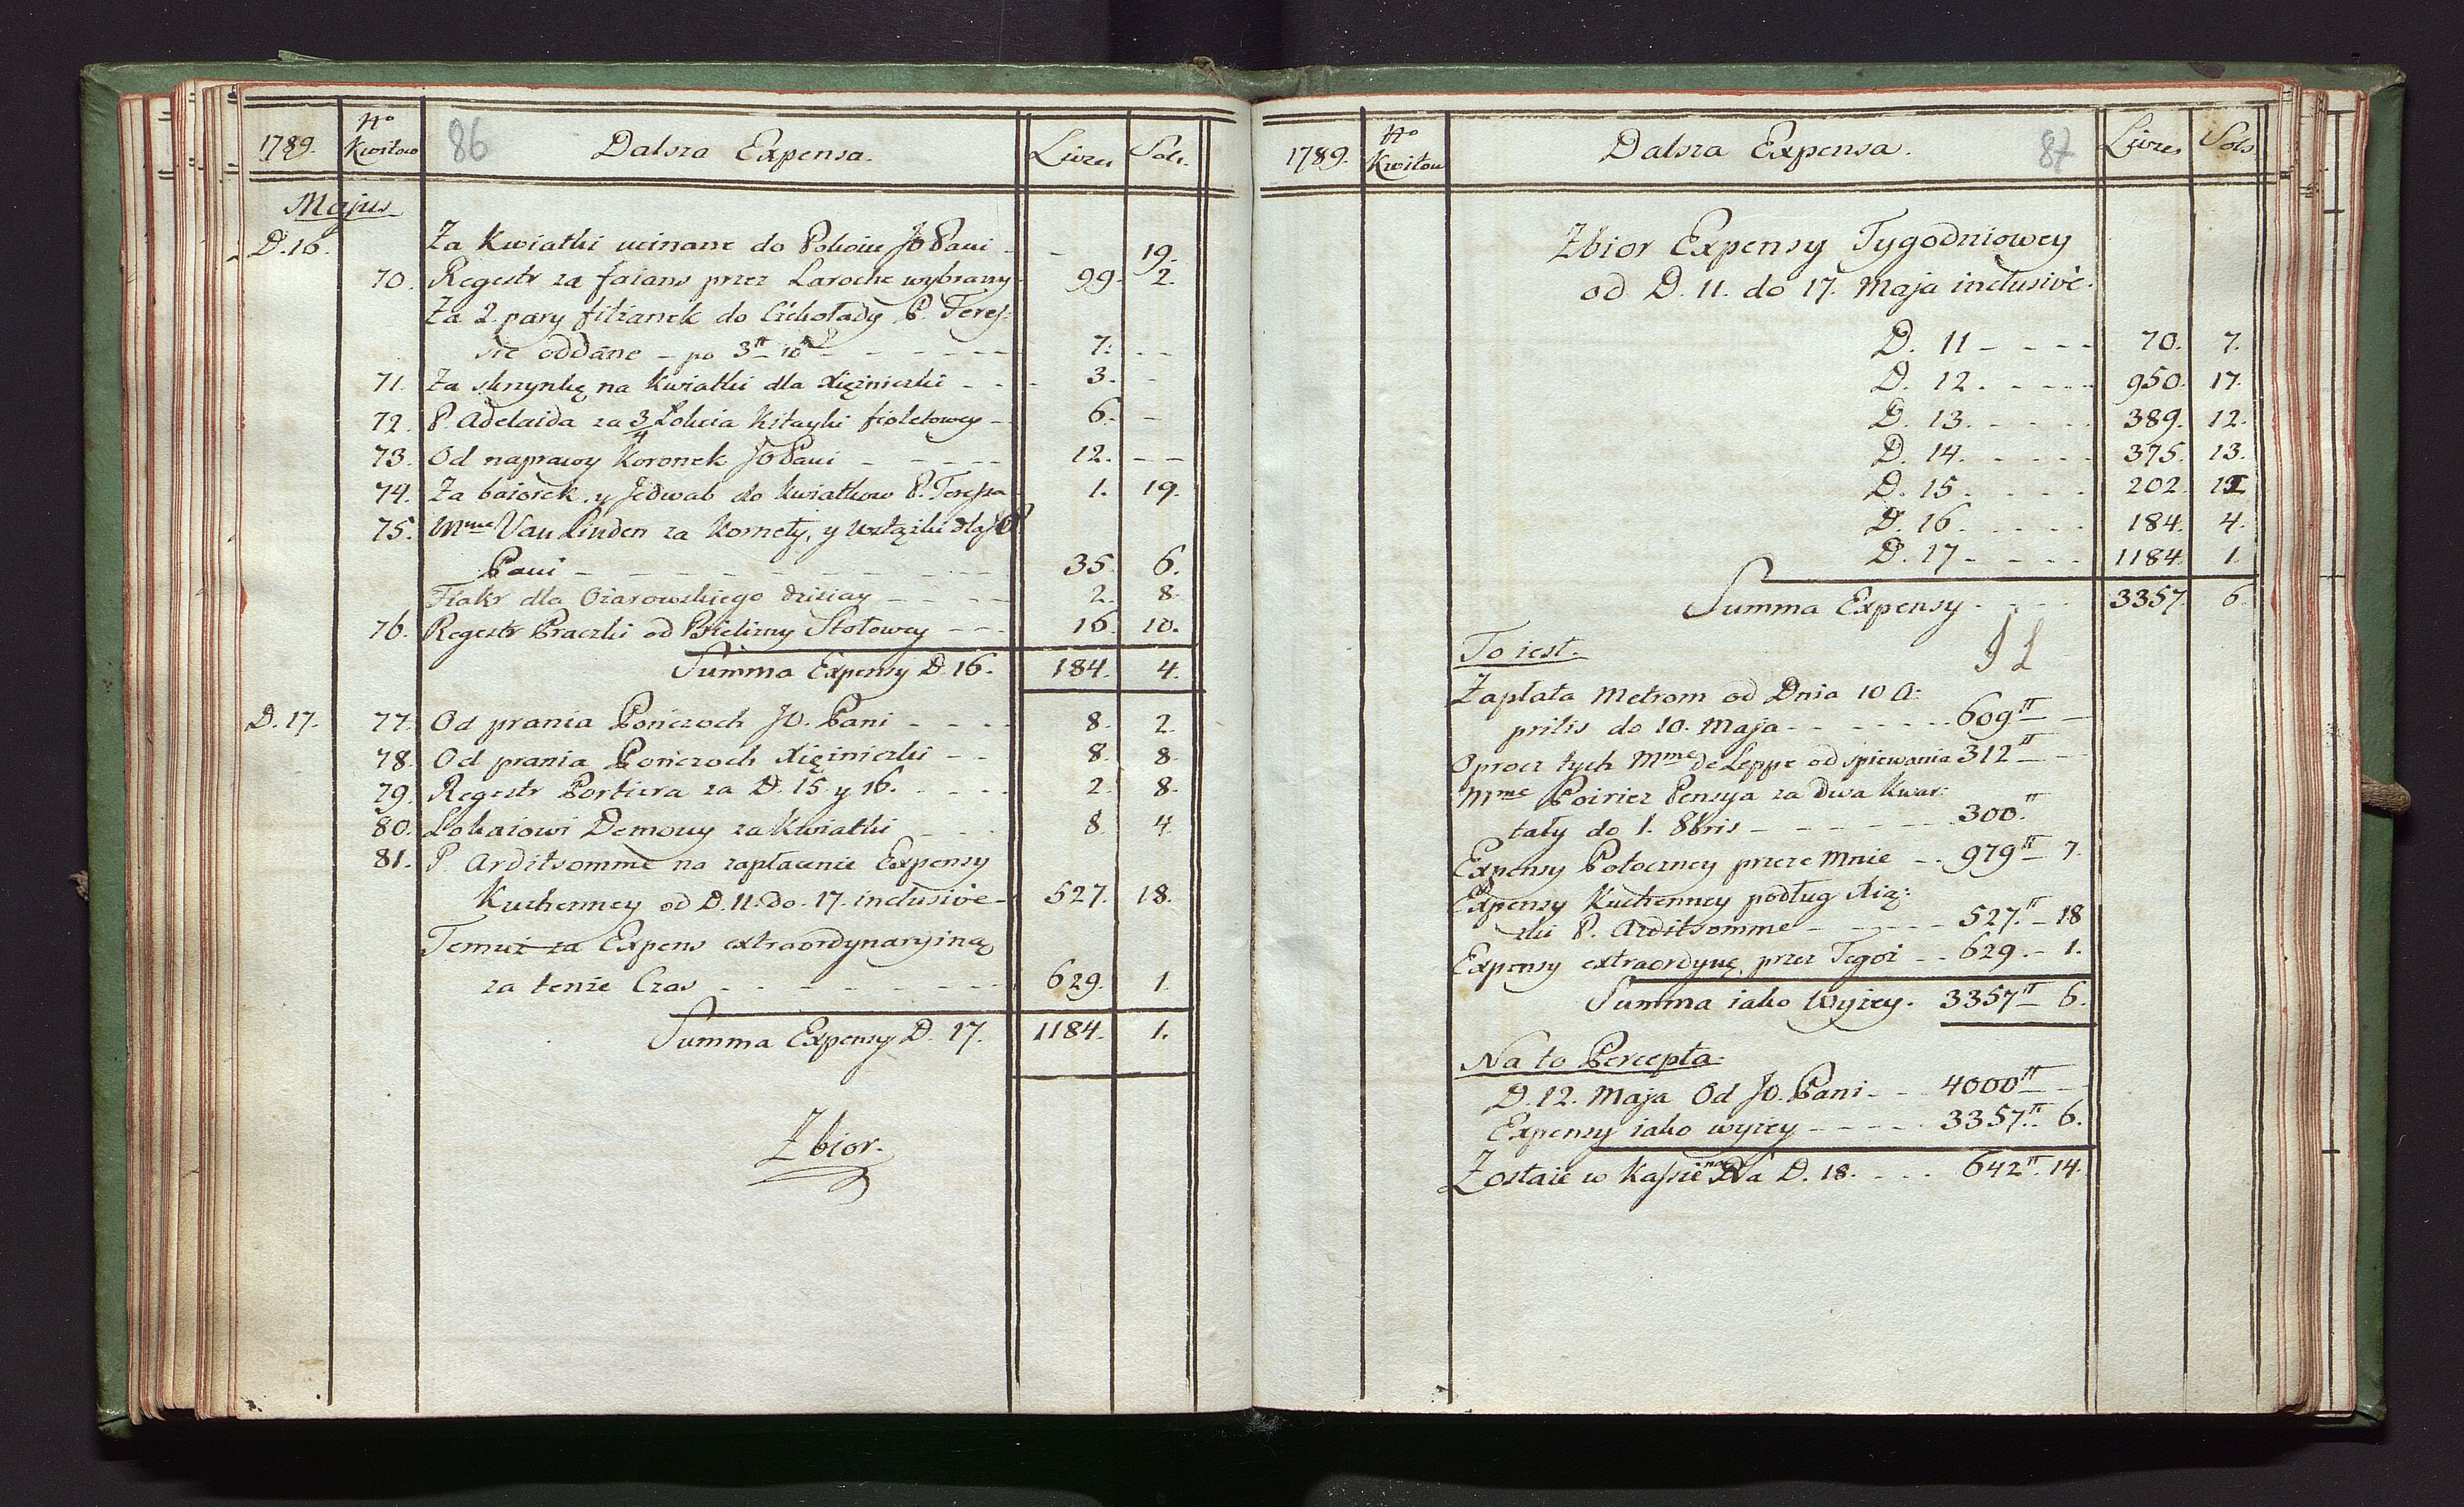 1789. No Kwitow 86 Dalsza Expensa. Livres Sols.
Majus
D. 16. Za Kwiatki ucinane do Pokoiu JO Pani - 19.
70. Regestr za faians przez Laroche wybrany 99. 2.
Za 2 pary filiżanek do Cżekołady P. Teres:
sie oddane - po 3tt 10s - - - 7. - -
71. Za skrzynkę na kwiatki dla Xiężniczki - - - 3. -
72. P. Adelaida za 3/4 Łokcia Kitayki fioletowey - 6. -
73. Od naprawy Koronek JO Pani - - - 12. - -
74. Za baiorek y Jedwab do kwiatkow P. Teressa 1. 19.
75. Mme Van Linden za Kornety, y wstążki dla JO
Pani - - - 35. 6.
Fiakr dla Ożarowskiego dzisiay - - - 2. 8.
76. Regestr Praczki od Bielizny Stołowey - - - 16. 10.
Summa Expensy D. 16. 184. 4.
D. 17. 77. Od prania Pończoch JO. Pani - - - 8. 2.
78. Od prania Pończoch Xiężniczki - - 8. 8.
79. Regestr Portiera za D. 15 y 16. - - - 2. 8.
80. Lokaiowi Demouy za kwiatki - - - 8. 4.
81. P. Arditsomme na zapłacenie Expensy
Kuchenney od D. 11. do 17. inclusivè - 527. 18.
Temuż za Expens extraordynaryiną
za tenże Czas - - - 629. 1.
Summa Expensy D. 17. 1184. 1.
Zbior.
1789. No Kwitow Dalsza Expensa. 87 Livres Sols
Zbior Expensy Tygodniowey
od D. 11. do 17. Maja inclusivè.
D. 11 - - - - 70. 7.
D. 12. - - - - 950. 17.
D. 13. - - - - 389. 12.
D. 14. - - - - 375. 13.
D. 15. - - - - 202. 12
D. 16. - - - - 184. 4.
D. 17 - - - - 1184. 1.
Summa Expensy - - - 3357. 6.
To iest.
Zapłata Metrom od Dnia 10 A:
prilis do 10. Maja - - - 609tt -
Oprocz tych Mme de Leppe od spiewania 312tt - -
Mme Poirier Pensya za dwa Kwar:
tały do 1. 8bris - - - 300.tt
Expensy Potoczney przeze Mnie - - 979tt 7.
Expensy Kuchenney podług Xią:
żki P. Arditsomme - - - 527.tt - 18
Expensy extraordynę przez Tegoż - - 629. - 1.
Summa iako Wyżey. 3357tt 6.
Na to Percepta.
D. 12. Maja Od JO. Pani - - 4000tt -
Expensy iako wyżey - - - 3357tt 6.
Zostaie w Kassie na D. 18. - - - 642tt 14.